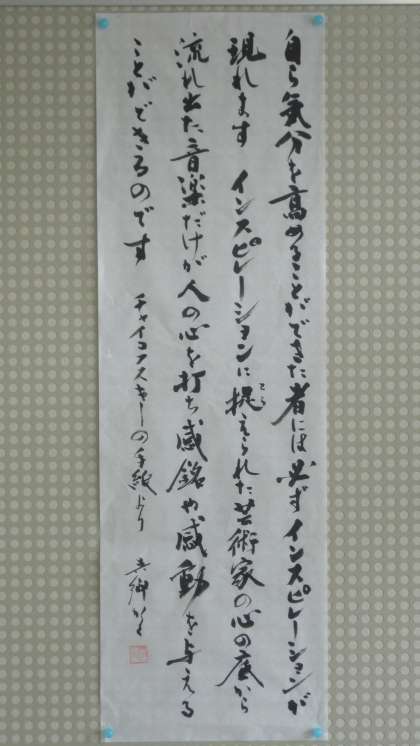 自ら気分を高めることができた者には必ずインスピレーションが
現れます インスピレーションに捉えられた芸術家の心の底から
流れ出た音楽だけが人の心を打ち感銘や感動を与える
ことができるのです チャイコフスキーの手紙より
とら